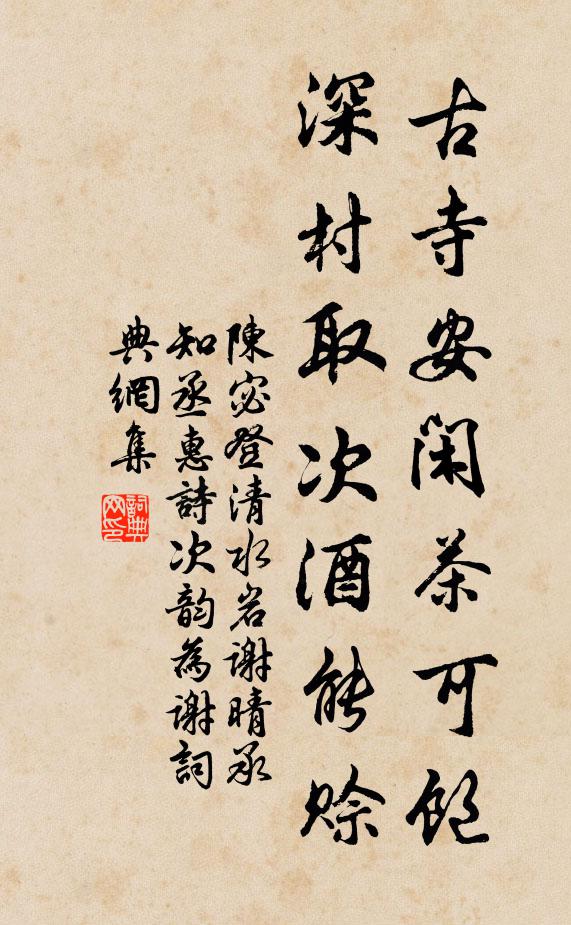 古寺安閑茶可飽
深村取次酒能賒
陳宓登清水岩謝晴承
知丞惠詩次韵為謝詞
典網集
詞典
网印